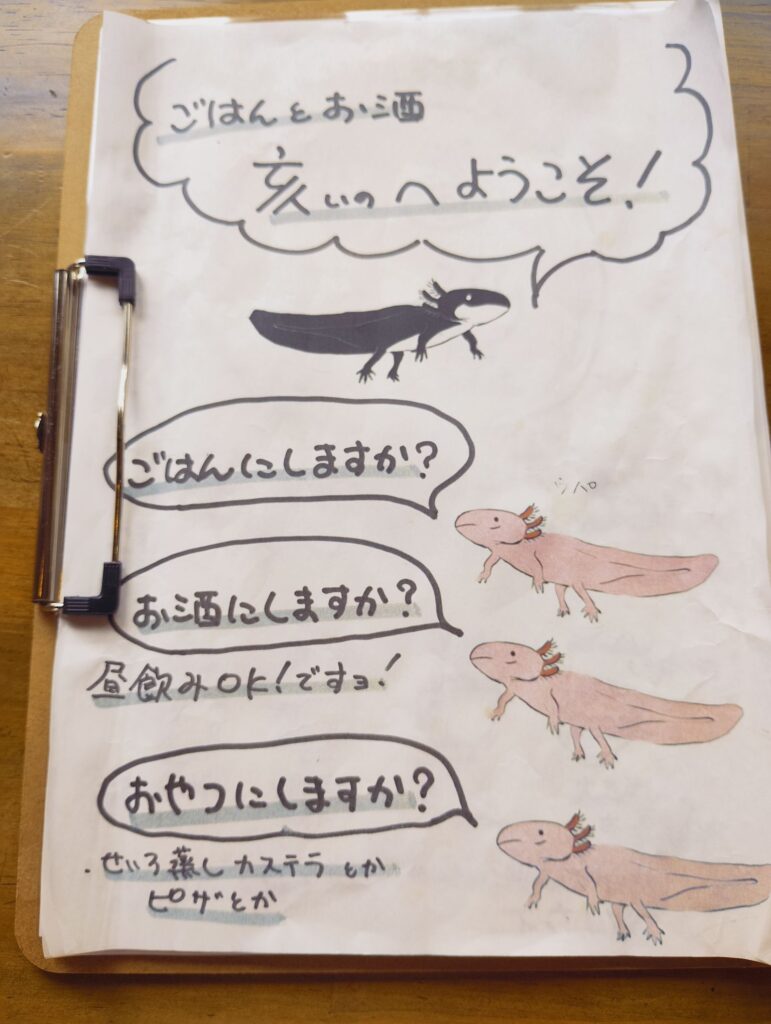 ごはんとお酒
亥いの へ ようこそ!
ごはんにしますか?
お酒にしますか?
昼飲みOK!ですョ!
おやつにしますか?
・せいろ蒸し カステラ とか
ピザとか